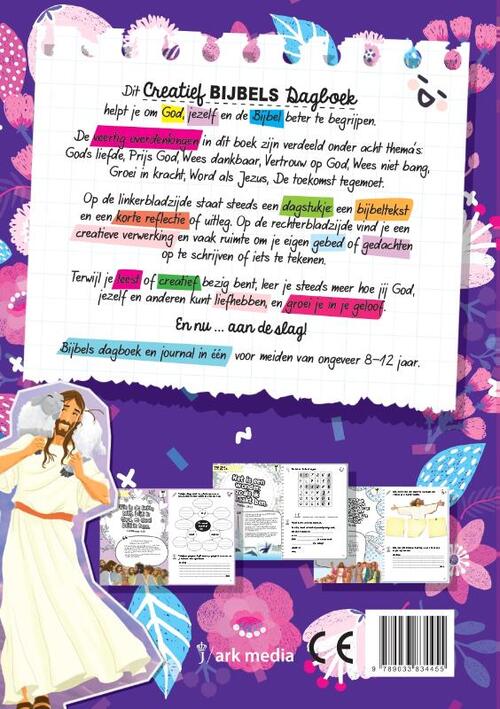 Dit Creatief BIJBELS Dagboek
helpt je om God, jezelf en de Bijbel beter te begrijpen.
De veertig overdenkingen in dit boek zijn verdeeld onder acht thema's:
Gods liefde, Prijs God, Wees dankbaar, Vertrouw op God, Wees niet bang,
Groei in kracht, Word als Jezus, De toekomst tegemoet.
Op de linkerbladzijde staat steeds een dagstukje: een bijbeltekst
en een korte reflectie of uitleg. Op de rechterbladzijde vind je een
creatieve verwerking en vaak ruimte om je eigen gebed of gedachten
op te schrijven of iets te tekenen.
Terwijl je leest of creatief bezig bent, leer je steeds meer hoe jij God,
jezelf en anderen kunt liefhebben, en groei je in je geloof.
En nu ... aan de slag!
Bijbels dagboek en journal in één voor meiden van ongeveer 8-12 jaar.
Het is een
j/ark media
CE
9 789033 834455